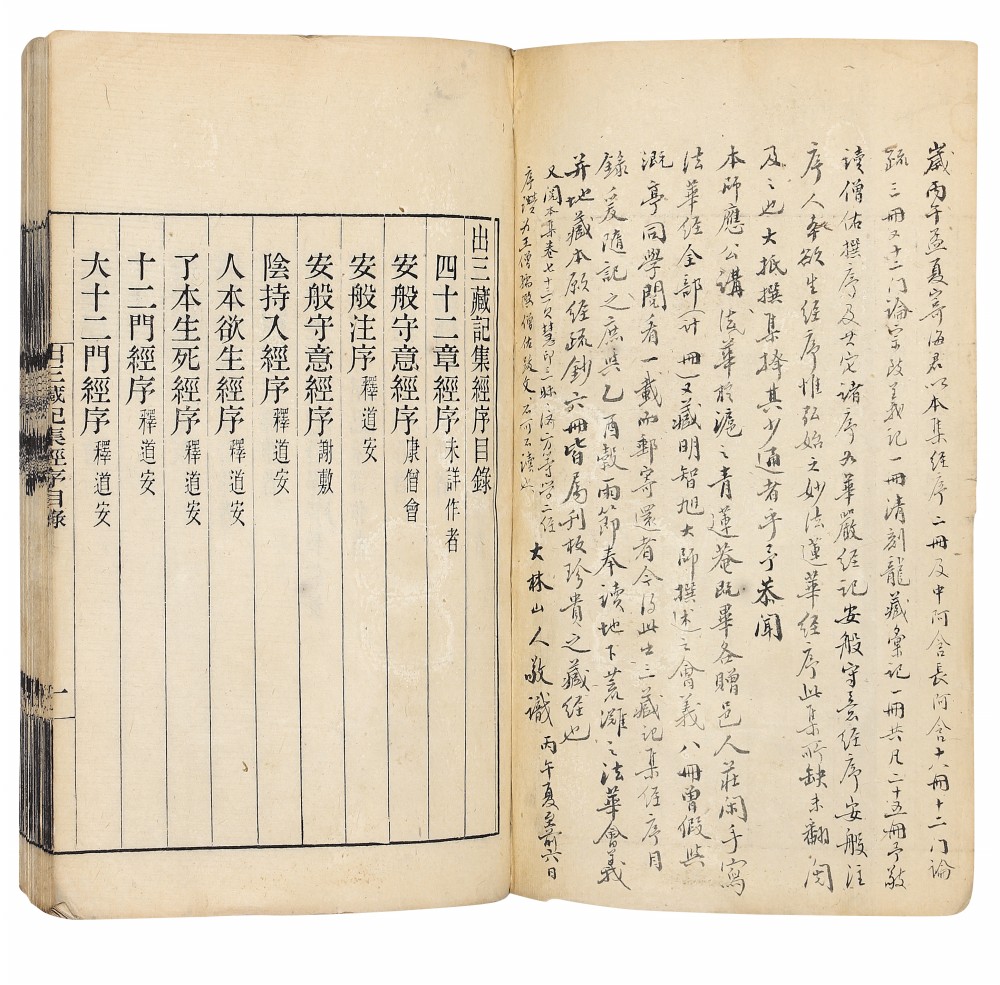 歲丙午孟夏寄海君以本集經序二冊及中阿含長阿含十六冊十二门論
疏三冊又十二门論宗致義记一冊清刻龍藏彙记一冊共凡二十五冊予敬
讀僧佑撰序及其它諸序如華嚴经记安般守意经序安般注
序人本欲生经序惟弘始之妙法蓮華经序此集所缺未翻閱
及之也大抵撰集擇其少通者乎予恭聞
本師應公講法華於滬之青蓮菴既畢各贈邑人莊閑手寫
法華经全部(计 冊)又藏明智旭大师撰述之會義八冊曾假与
溉亭同學閱看一載而郵寄還者今得此出三藏记集经序目
錄爰隨记之庶与乙酉穀雨節奉讀地下荒灘之法華會義
并地藏本願经疏鈔六冊皆屬刊板珍貴之藏经也
又閱本集卷七十三
序 为王僧孺 僧佑 文 不可不讀也 大林山人敬識 丙午夏至前六日
出三藏記集經序目錄
四十二章經序 未詳作者
安般守意經序 康僧會
安般注序 釋道安
安般守意經序 謝敷
陰持入經序 釋道安
人本欲生經序 釋道安
了本生死經序 釋道安
十二門經序 釋道安
大十二門經序 釋道安
出三藏記集經序目錄
一